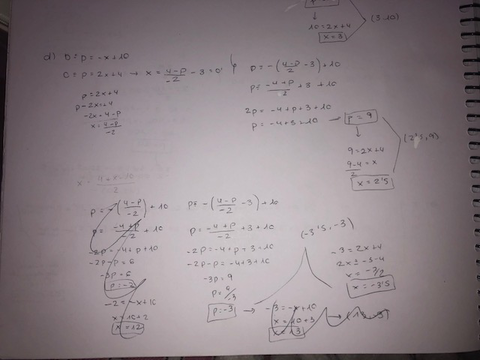 10=2x+4
x=3
(3,10)
d) D=p=-x+10
O=p=2x+4 → x=4-p/-2 -3=0
p=2x+4
p-2x=4
-2x=4-p
p=-(4-p/-2 -3)+10
p=-4+p/-2 +3+10
2p=-4+p+3+10
p=-4+3+10 → p=9
9=2x+4
9-4/2=x
x=2'5
(2'5,9)
p=-(4-p/-2)+10
p=-4+p/-2 +10
-2p=-4+p+10
-2p-p=6
-3p=6
p=-2
-2=-x+10
x=10+2
x=12
p=-(4-p/-2 -3)+10
p=-4+p/-2 +3+10
-2p=-4+p+3+10
-2p-p=-4+3+10
-3p=9
p=-3 →
-3=-x+10
x=10+3
x=13
(-3'5,-3)
-3=2x+4
2x=-3-4
x=-7/2
x=-3'5